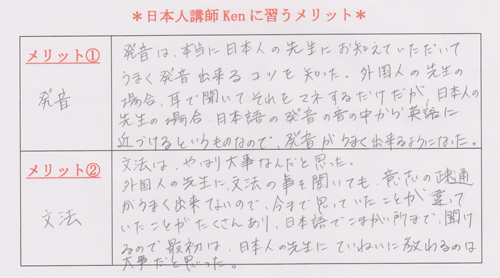 ＊日本人講師Kenに習うメリット＊
メリット①
発音
発音は、本当に日本人の先生にお知えていただいて
うまく発音出来るコツを知った。外国人の先生の
場合、耳で聞いてそれをマネするだけだが、日本人の
先生の場合、日本語の発音の音の中から英語に
近づけるというものなので、発音がうまく出来るようになった。
メリット②
文法
文法は、やはり大事なんだと思った。
外国人の先生に、文法の事を聞いても、意志の疎通
がうまく出来てないので、今まで思っていたことが違って
いたことがたくさんあり、日本語でこまかい所まで、聞け
るので最初は、日本人の先生にていねいに教わるのは
大事だと思った。